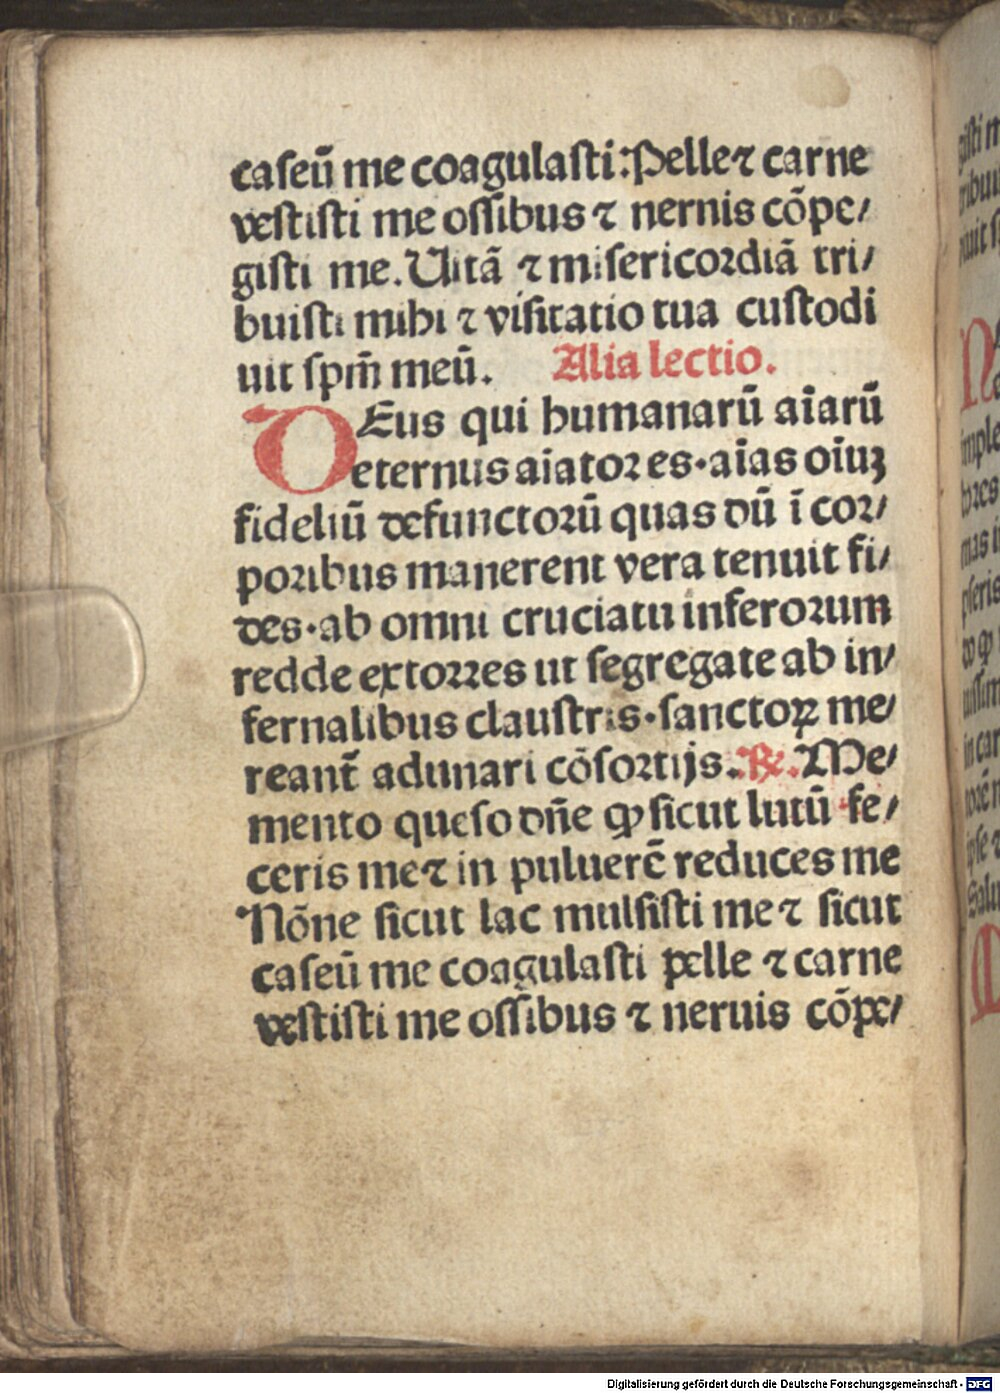 caseū me coagulasti: Pelle ⁊ carne
vestisti me ossibus ⁊ nernis cōpe/
gisti me. Uitā ⁊ misericordiā tri/
buisti mihi ⁊ visitatio tua custodi
uit spm̄ meū. Alia lectio.
DEus qui humanarū aīarū
eternus aīator es·aīas oīuꝫ
fideliū defunctorū quas dū ī cor/
poribus manerent vera tenuit fi/
des·ab omni cruciatu inferorum
redde extorres ut segregate ab in/
fernalibus claustris·sanctoꝝ me/
reant̄ adunari cōsortijs. ℞. Me/
mento queso dn̄e ꝙ sicut lutū fe/
ceris me ⁊ in puluerē reduces me
Nōne sicut lac mulsisti me ⁊ sicut
caseū me coagulasti pelle ⁊ carne
vestisti me ossibus ⁊ neruis cōpe/
Digitalisierung gefördert durch die Deutsche Forschungsgemeinschaft - DFG